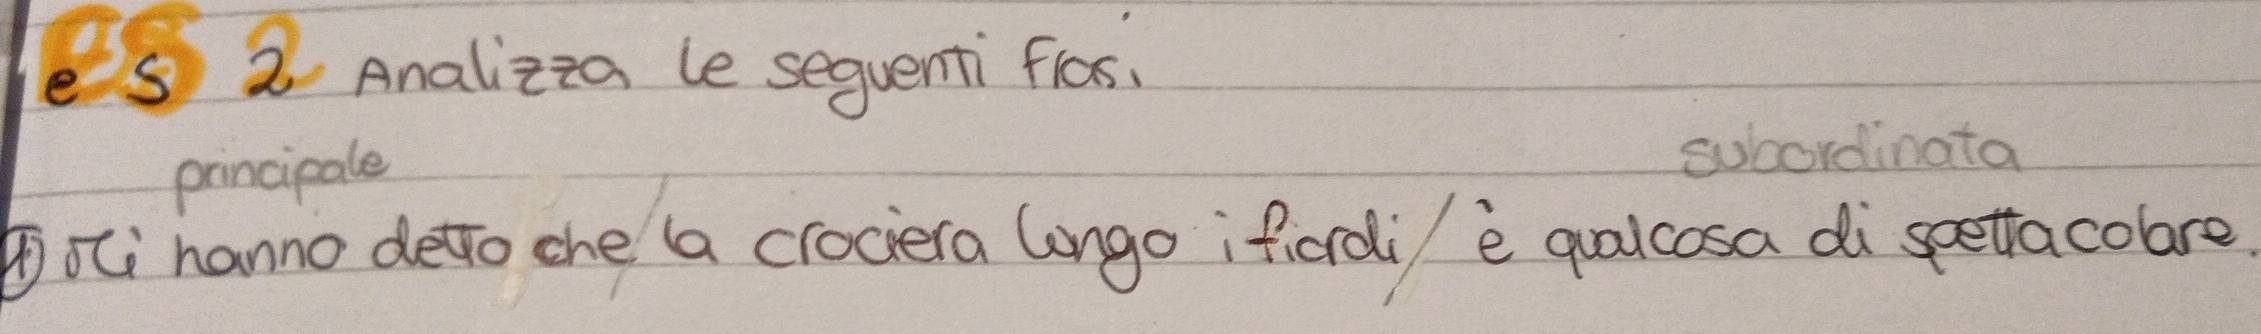 es 2 Analizza le seguenti frasi
principale subordinata
① Mi hanno detto che / la crociera lungo i fiordi / è qualcosa di spettacolare.